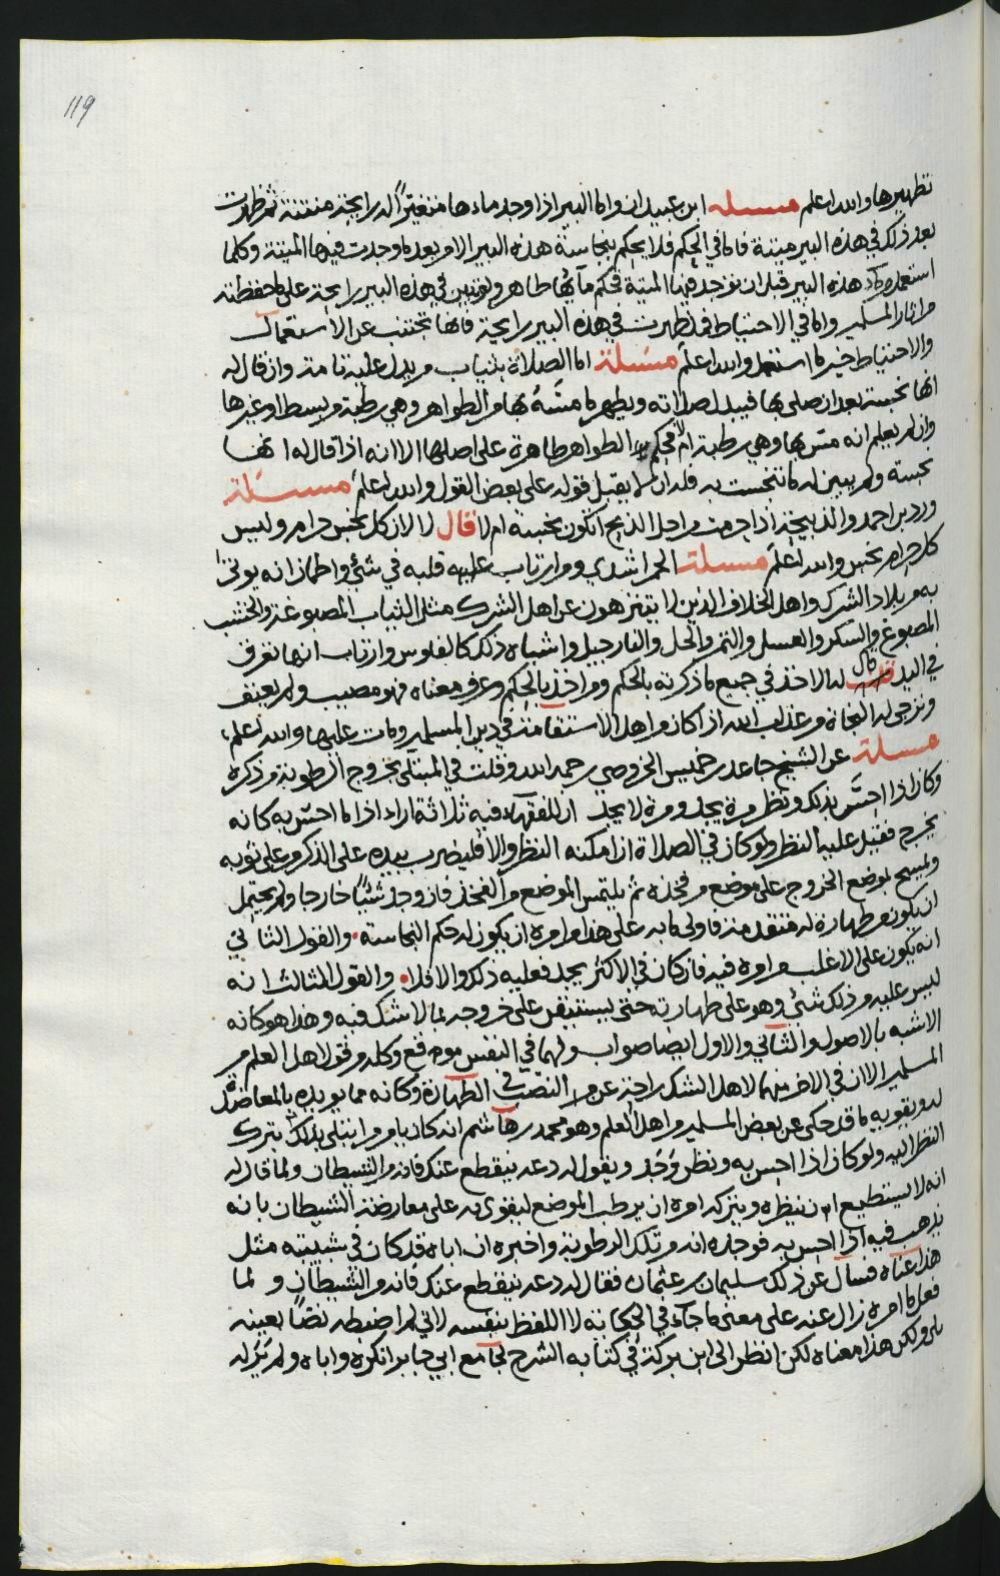 119
تطهيرها والله اعلم مسئلة ابن عبيدان واما البير اذا وجد ماءها متغيرا له رايحة منتنة ثم ظهرت
بعد ذلك في هذه البير ميتة فاما في الحكم فلا يحكم بنجاسة هذه البير الا من بعد ما وجدت فيها الميتة وكلما
استعمل من ماء هذه البير قبل ان توجد فيها الميتة فحكم مآئها طاهر ولو تبين في هذه البير رايحة على ما حفظته
من اثار المسلمين واما في الاحتياط فمذ ظهرت في هذه البير رايحة فانها تجتنب عن الاستعمال
والاحتياط خير ما استعمل والله اعلم مسئلة اما الصلاة بثياب من يدل عليه تامة وان قال له
انها نجسة بعد ان صلى بها فيبدل صلاته ويطهر ما مسّه بها من الطواهر وهي رطبة من بسط او غيرها
وان لم يعلم انه مس بها وهي رطبة ام لا فحكم الطواهر طاهرة على اصلها الا انه اذا قال له انها
نجسة ولم يبين له ما تنجست به فله ان لا يقبل قوله على بعض القول والله اعلم مسئلة
ورد بن احمد والذبيحة اذا حرمت من اجل الذبح اتكون نجسة ام لا قال لا لان كل نجس حرام وليس
كل حرام نجس والله اعلم مسئلة الحمراشدي ومن ارتاب عليه قلبه في شئي واطمان انه يوتى
به من بلاد الشرك واهل الخلاف الذين لا يتنزهون عن اهل الشرك مثل الثياب المصبوغة والخشب
المصبوغ والسكر والعسل والتمر والخل والنارجيل واشباه ذلك كالفلوس وارتاب انها تعرف
في اليد قال له الاخذ في جميع ما ذكرته بالحكم ومن اخذ بالحكم وعرف معناه فهو مصيب ولم يعنف
ونرجى له النجاة من عذاب الله اذا كان من اهل الاستقامة في دين المسلمين ومات عليها والله اعلم
مسئلة عن الشيخ جاعد بن خميس الخروصي رحمه الله وقلت في المبتلى بخروج الرطوبة من ذكره
وكان اذا احسّ بذلك ونظر مرة يجد ومرة لا يجد ان للفقهآء فيه ثلاثة اراء اذا ما احسّ به كانه
يخرج فقيل عليه النظر ولو كان في الصلاة ان امكنه النظر والا فليضرب بيده على الذكر وعلى ثوبه
ويمسح موضع الخروج على موضع من فخذه ثم يلتمس الموضع من الفخذ فان وجد شئيا خارجا ولم يحتمل
ان يكون من طهارة له متقدمة فاولى ما به على هذا من امره ان يكون له حكم النجاسة والقول الثاني
انه يكون على الاغلب من امره فيه فان كان في الاكثر يجد فعليه ذلك والا فلا والقول الثالث انه
ليس عليه من ذلك شئي وهو على طهارته حتى يستيقن على خروجه بما لا شك فيه وهذا هو كانه
الاشبه بالاصول والثاني والاول ايضا صواب ولهما في النفس موقع وكله من قول اهل العلم من
المسلمين الا ان في الاخر منهما لاهل الشك راحة عن النصب في الطهارة وكانه مما يويده بالمعاضدة
له ويقويه ما قد حكي عن بعض المسلمين من اهل العلم وهو محمد بن هاشم انه كان يامر من ابتلى بذلك بترك
النظر اليه ولو كان اذا احس به ونظر وجد ويقول له دعه ينقطع عنك فانه من الشيطان ولما قال له
انه لا يستطيع ان ينظره ويتركه امره ان يرطب الموضع ليقوى به على معارضة الشيطان بانه
يذهب فيه اذا احس به فوجده انه من تلك الرطوبة واخبره ان اباه قد كان في شبيبته مثل
هذا عناه فسأل عن ذلك سليمان بن عثمان فقال له دعه ينقطع عنك فانه من الشيطان و لما
فعل ما امره زال عنه على معنى ما جآء في الحكاية لا اللفظ بنفسه لاني لم اضبطه نصًا بعينه
ولكن هذا معناه لكن انظر الى ابن بركة في كتابه الشرح لجامع ابي جابر انكره واباه ولم يره له